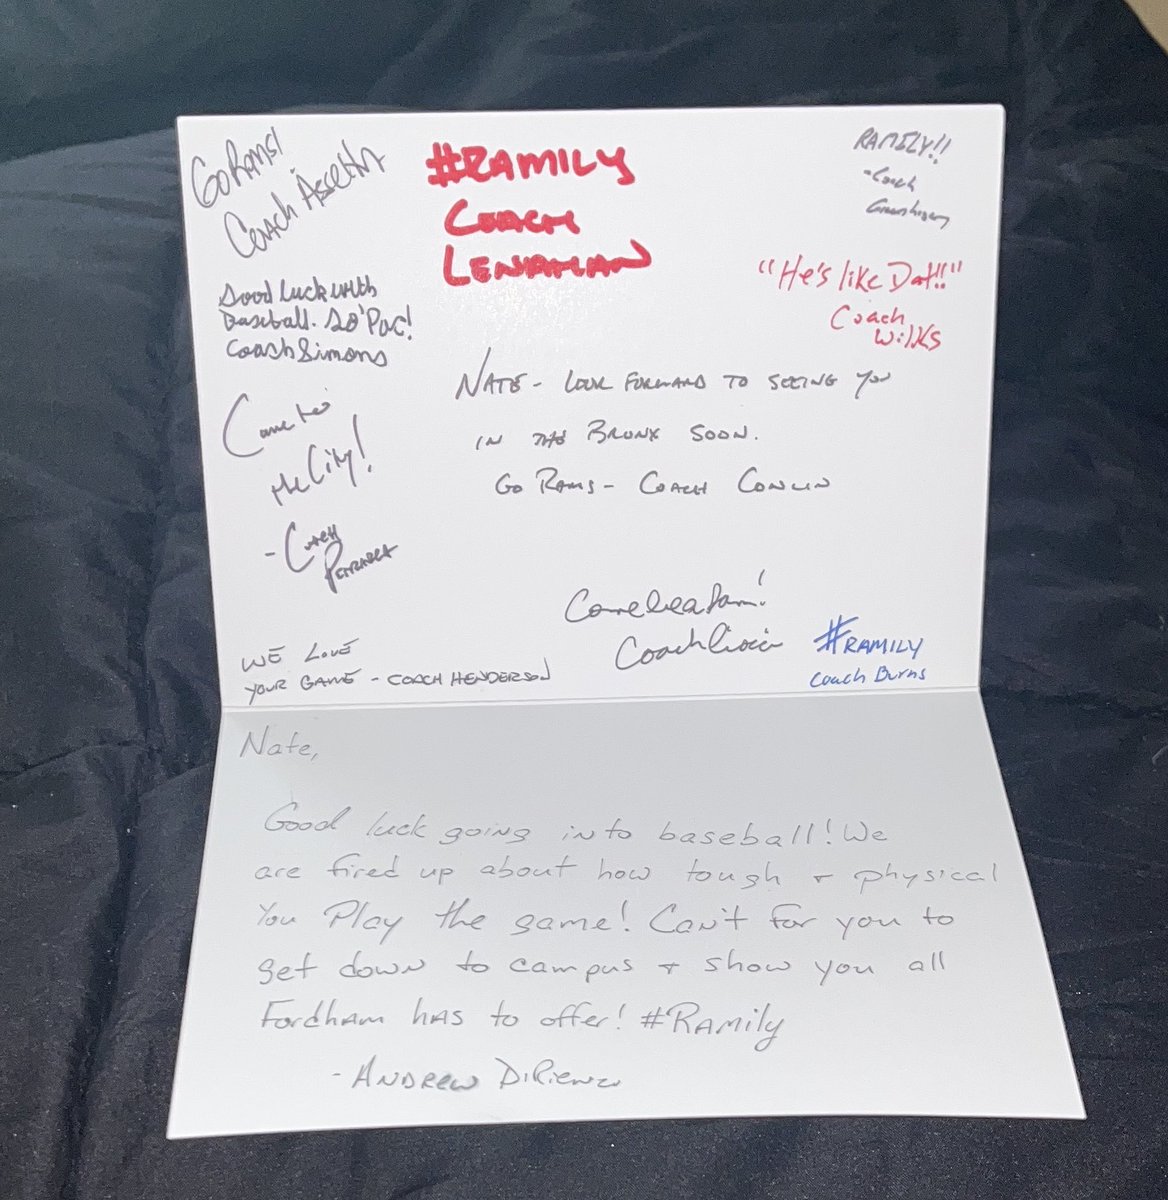 Go Rams!
Coach Assetta
#RAMILY
COACH
LENAHAN
RAMILY!!
-Coach
"He's like Dat!!"
Coach
Wilks
Good luck with
Baseball.
Coach Simons
NATE - LOOK FORWARD TO SEEING YOU
IN THE BRONX SOON.
GO RAMS - COACH CONLIN
Come to
the City!
- Coach
Come be a Ram!
Coach
#RAMILY
Coach Burns
WE LOVE
YOUR GAME - COACH HENDERSON
Nate,
Good luck going into baseball! We
are fired up about how tough + physical
You Play the game! Can't for you to
get down to campus + show you all
Fordham has to offer! #Ramily
- ANDREW DiRienzo